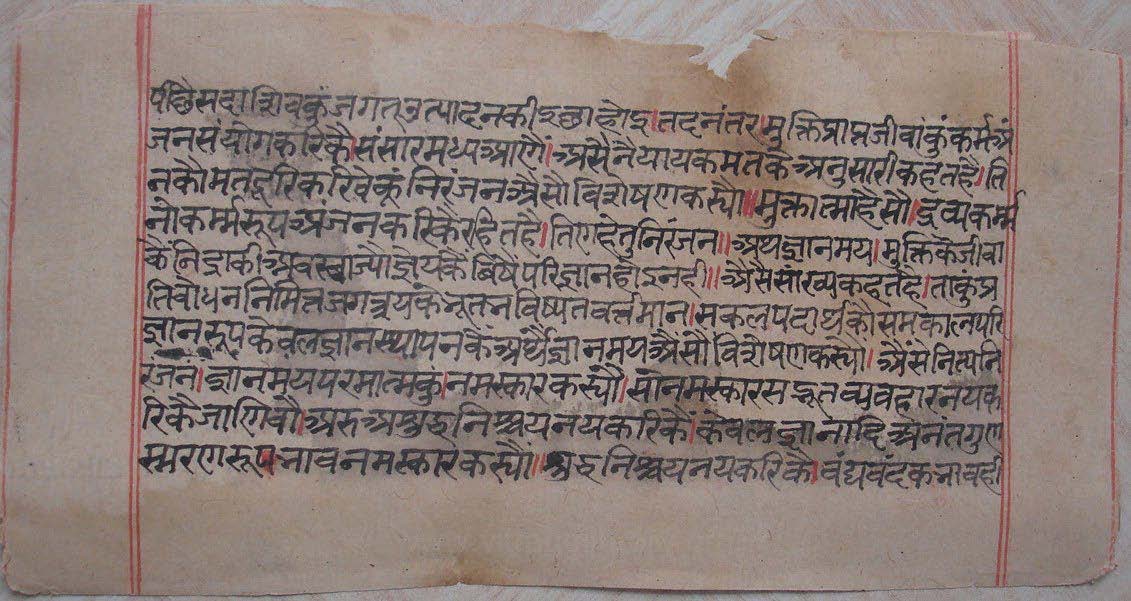 पीछै सदाशिवकुं जगत् उत्पादनकी इछा होइ। तदनंतर। मुक्तिप्राप्तजीवांकुं कर्मअं
जनसंयोगकरिकै। संसारमध्य आणै। असै नैयायकमतके अनुसारी कहत है। ति
नकौ मत दूरि करिवेकूं निरंजन असौ विशेषण कह्यौ॥ मुक्तात्मा है सौ। द्रव्यकर्म्म
नोकर्म्मरूप अंजनकरिकै रहित है। तिण हेतु निरंजन॥ अथ ज्ञानमय। मुक्तिकै जीवां
कैं निद्राकी अवस्था ज्यौं ज्ञेयकै बिषैं परिज्ञान होइ नही॥ अैसै सांख्य कहत है। ताकुं प्र
तिबोधननिमित्त जगत्रयकै भूत भविष्यत वर्त्तमान। सकलपदार्थकौ समकालपरि
ज्ञानरूप केवलज्ञानस्थापनकैं अर्थैं ज्ञानमय अैसौ विशेषण कह्यौ। अैसे नित्य नि
रंजन। ज्ञानमय परमात्मकुं। नमस्कार कह्यौ। सो नमस्कार सद्भूतव्यवहारनयक
रिकै जाणिवौ। अरु अशुद्धनिश्चयनयकरिकैं। केवलज्ञानादि अनंतगुण
स्मरणरूप भावनमस्कार कह्यौ॥ शुद्धनिश्चयनयकरिकै। वंद्यवंदकभाव ही